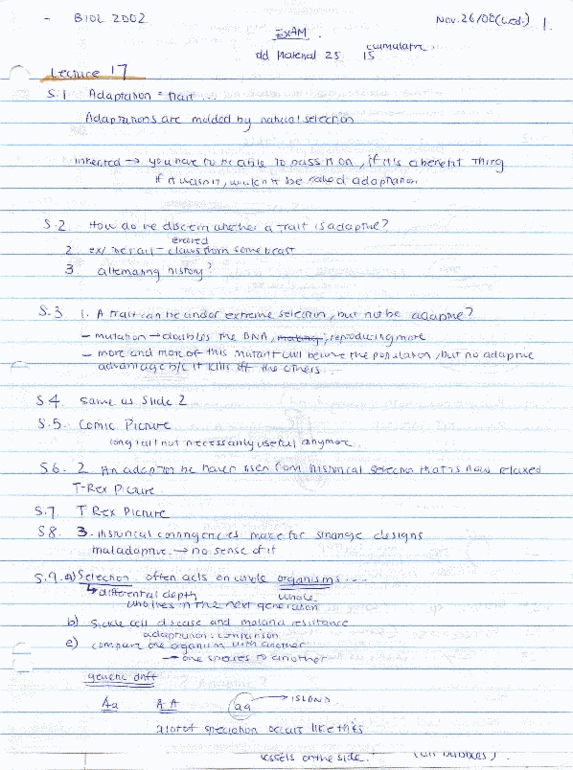 - BIOL 2002
Nov. 26/08 (Wed.) 1.
EXAM.
old Material 25 cumulative 15
Lecture 17
S.1 Adaptation = trait ...
Adaptations are molded by natural selection
inherited → you have to be able to pass it on, if it's a benefit thing
if it wasn't, wouldn't be called adaptation
S.2 How do we discern whether a trait is adaptive?
2. ex/ claws from some beast
3 alternating history?
S.3 1. A trait can be under extreme selection, but not be adaptive?
- mutation → doubles the DNA, making, reproducing more
- more and more of this mutant will become the population, but no adaptive
advantage b/c it kills off the others
S4. same as Slide 2
S.5. Comic Picture
long tail not necessarily useful anymore.
S6. 2. An adaption from historical selection that is now relaxed
T-Rex Picture
S.7. T Rex Picture
S8. 3. historical contingencies make for strange designs
maladaptive → no sense of it
S.9. a) Selection often acts on whole organisms ...
↳ differential depth whole
who lives in the next generation
b) Sickle cell disease and malaria resistance
adaptation: comparison
c) compare one organism with another
→ one species to another
genetic drift
Aa AA aa → ISLAND
a lot of speciation occurs like this
on the side.